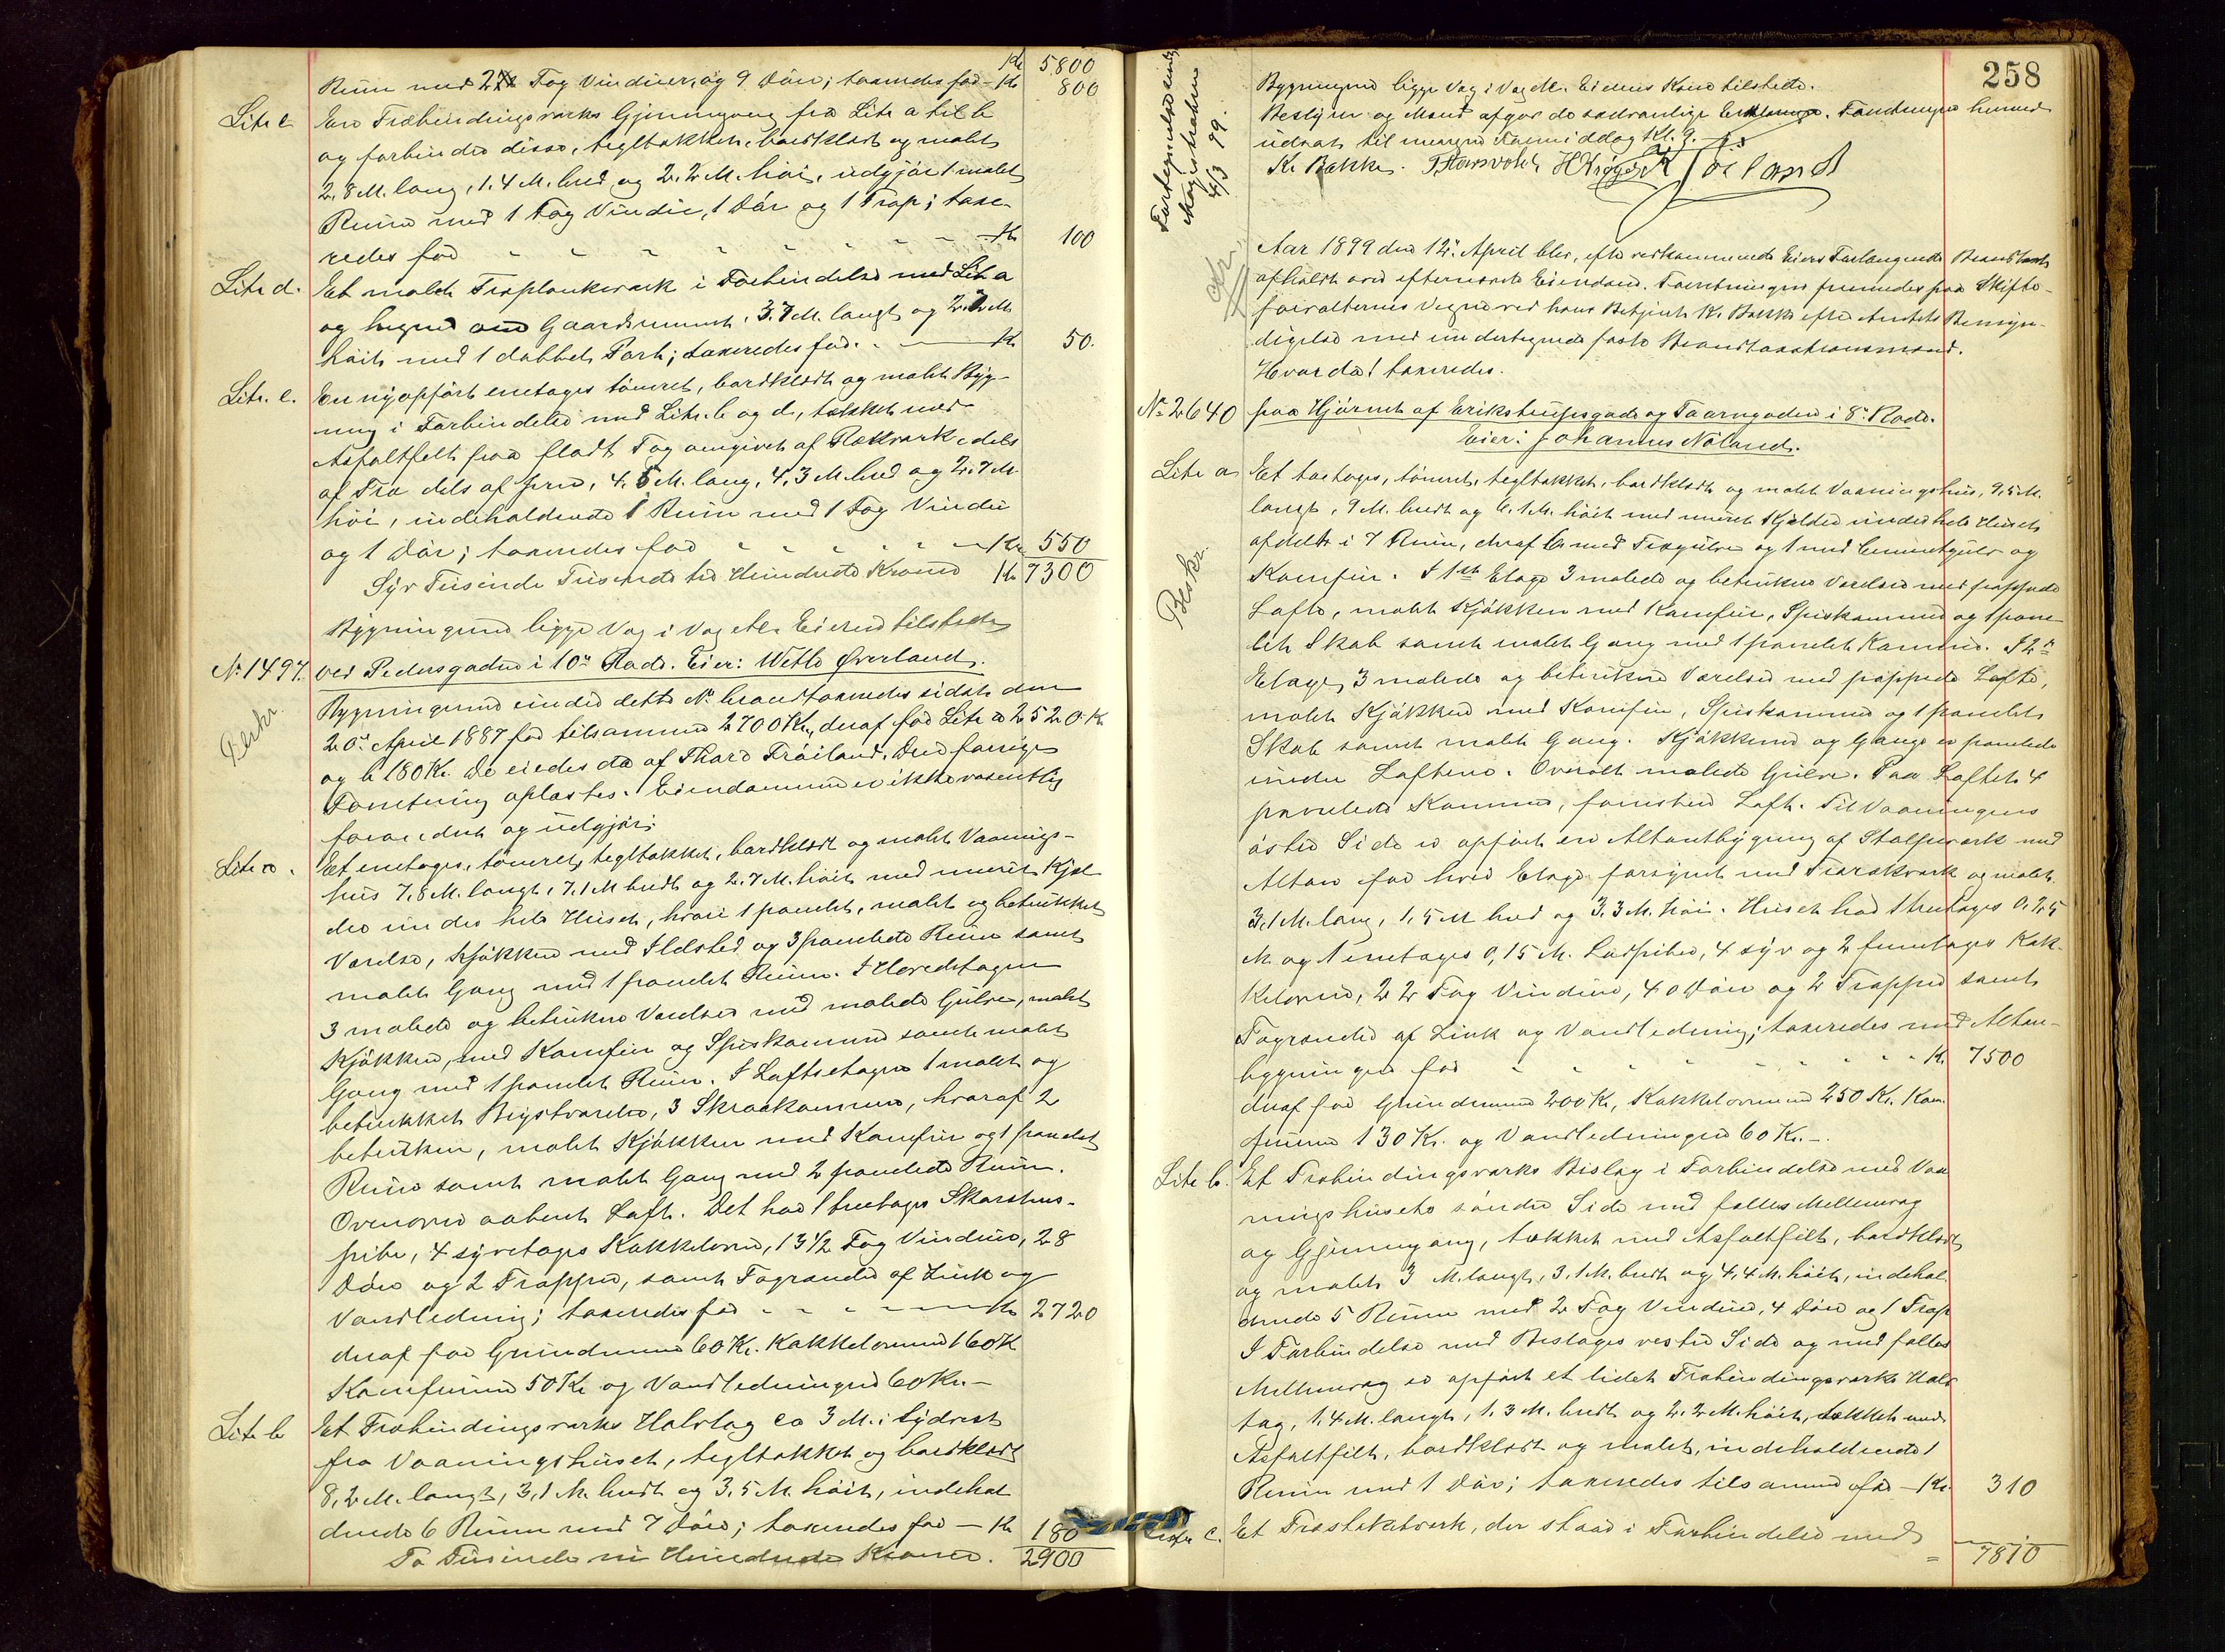 Kr 5800
Rum med 2 Fag Vinduer, og 9 Döre; taxeredes for – Kr 800
Litr c En Træbindingsværks Gjennemgang fra Litr a til b
og forbinder disse, tegltækket, bordklædt og malet
2,8 M. lang, 1,4 M. bred og 2,2 M. høi, udgjör 1 malet
Rum med 1 Fag Vindu, 1 Dör og 1 Trap; taxe-
redes for - - - Kr 100
Litr d. Et malet Træplankeværk i Forbindelse med Litr a
og hegner om Gaardsrummet, 3,7 M. langt og 2,2 M.
höit med 1 dobbelt Port; taxeredes for - Kr 50.
Litr. e. En nyopfört enetages tömret, bordklædt og malet Byg-
ning i Forbindelse med Litr. b og d, tækket med
Asfaltfilt paa fladt Tag omgivet af Rækværk dels
af Træ dels af Jern, 4,5 M. lang, 4,3 M. bred og 2,7 M.
höi, indeholdende 1 Rum med 1 Fag Vindu
og 1 Dör; taxeredes for - - - Kr. 550
Syv Tusinde tre Hundrede Kroner Kr 7300
Bygningerne ligge Væg i Væg etc. Eieren tilstede
No 1497. ved Pedersgaden i 10de Rode. Eier: Wette Överland.
Beskr.
Bygningerne under dette No brandtaxeredes sidst den
20de April 1887 for tilsammen 2700 Kr, deraf for Litr a 2520 Kr
og b 180 Kr. De eiedes da af Thore Fröiland. Den forrige
Forretning oplæstes. Eiendommen er ikke væsentlig
forandret og udgjör:
Litr a. Et enetages, tömret, tegltækket, bordklædt og malet Vaanings-
hus 7,8 M. langt, 7,1 M. bredt og 2,7 M. höit med muret Kjæl-
der under hele Huset, hvori 1 panelet, malet og betrukket
Værelse, Kjökken med Ildsted og 3 panelede Rum samt
malet Gang med 1 panelet Rum. I Hovedetagen
3 malede og betrukne Værelser med malede Gulve, malet
Kjökken, med Komfur og Spiskammer samt malet
Gang med 1 panelet Rum. I Loftsetagen 1 malet og
betrukket Kvistværelse, 3 Skraakammere, hvoraf 2
betrukne, malet Kjökken med Komfur og 1 panelet
Rum samt malet Gang med 2 panelede Rum.
Ovenover aabent Loft. Det har 1 treetages Skorstens-
pibe, 4 syvetages Kakkelovne, 13 1/2 Fag Vinduer, 28
Döre og 2 Trapper, samt Tagrender af Zink og
Vandledning; taxeredes for - - - Kr 2720
deraf for Grundmuren 60 Kr. Kakkelovnene 160 K
Komfurene 50 Kr og Vandledningen 60 Kr. –
Litr b Et Træbindingsværks Halvtag ca 3 M. i Sydvest
fra Vaaningshuset, tegltækket og bordklædt
8,2 M. langt, 3,1 M. bredt og 3,5 M. höit, indehol-
dende 6 Rum med 7 Döre; taxeredes for – Kr 180
To Tusinde ni Hundrede Kroner. 2900
258
Bygningerne ligge Væg i Væg etc. Eierens Kone tilstede.
Bestyrer og Mænd afgav de sædvanlige Erklæringer. Forretningen hermed
udsat til imorgen Formiddag Kl. 9.
K. Bakke.
4/3 99.
Aar 1899 den 12te April blev, efter vedkommende Eieres Forlangende Brandtaxt
afholdt over efternævnte Eiendom. Forretningen fremmedes paa Skifte-
forvalterens Vegne ved hans Betjent K. Bakke efter Amtets Bemyn-
digelse med undertegnede faste Brandtaxationsmænd.
Hvorda! taxeredes.
No 2640 paa Hjörnet af Erikstrupsgade og Taarngaden i 8de Rode.
Eier: Johannes Nåland.
Beskr.
Litr a Et toetages, tömret, tegltækket, bordklædt og malet Vaaningshus, 9,5 M.
langt, 9 M. bredt og 6,1 M. höit med muret Kjelder under hele Huset
afdelt i 7 Rum, deraf 6 med Trægulve og 1 med Cementgulv og
Komfur. I 1ste Etage 3 malede og betrukne Værelser med pappede
Lofte, malet Kjökken med Komfur, Spiskammer og 1 pane-
let Skab samt malet Gang med 1 panelet Kammer. I 2den
Etage, 3 malede og betrukne Værelser med pappede Lofte,
malet Kjökken med Komfur, Spiskammer og 1 panelet
Skab samt malet Gang. Kjökkener og Gange er panelede
under Loftene. Overalt malede Gulve. Paa Loftet 4
panelede Kammer, forresten Loft. Til Vaaningens
östre Side er opfört en Altantbygning af Stolpeværk med
Altan for hver Etage forsynet med Trærækværk og malet
3,1 M. lang, 1,5 M bred og 3,3 M. höi. Huset har 1 treetages 0,25
M. og 1 enetages 0,15 M. Ludpibe, 4 syv og 2 femetages Kak-
kelovne, 22 Fag Vinduer, 40 Döre og 2 Trapper samt
Tagrender af Zink og Vandledning; taxeredes med Altan-
bygningen for - - - Kr. 7500
deraf for Grundmuren 200 Kr, Kakkelovnene 250 Kr. Kom-
furene 130 Kr. og Vandledningen 60 Kr. –
Litr b. Et Træbindingsværks Bislag i Forbindelse med Vaa-
ningshusets söndre Side med fælles Mellemvæg
og Gjennemgang, tækket med Asfaltfilt, bordklædt
og malet 3 M. langt, 3,1 M. bredt og 4,4 M. höit, indehol-
dende 5 Rum med 2 Fag Vinduer, 4 Döre og 1 Trap
I Forbindelse med Bislagets vestre Side og med fælles
Mellemvæg er opfört et lidet Træbindingsværks Halv-
tag, 1,4 M. langt, 1,3 M. bredt og 2,2 M. höit, tækket med
Asfaltfilt, bordklædt og malet, indeholdende 1
Rum med 1 Dör; taxeredes tilsammen for – Kr. 310
Litr c. Et Træstaketværk, der staar i Forbindelse med
7810